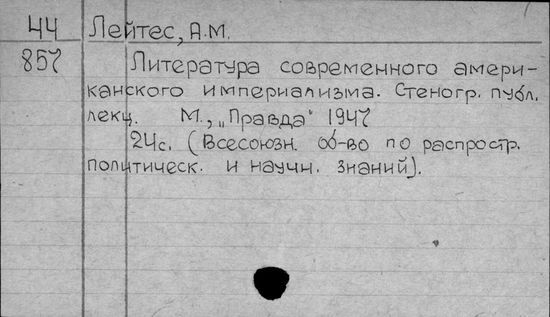 44 Лейтес, А.М.
857 Литература современного амери-
канского империализма. Стеногр. публ.
лекц. М., „Правда" 1947
24с. (Всесоюзн. об-во по распростр.
политическ. и научн. знаний).